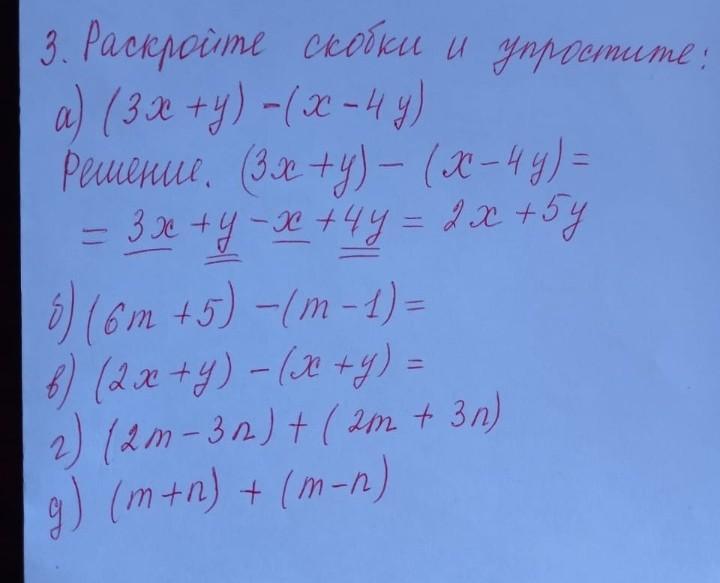 3. Раскройте скобки и упростите:
а) (3x + y) - (x - 4y)
Решение. (3x + y) - (x - 4y) =
= 3x + y - x + 4y = 2x + 5y
б) (6m + 5) - (m - 1) =
в) (2x + y) - (x + y) =
г) (2m - 3n) + (2m + 3n)
д) (m + n) + (m - n)